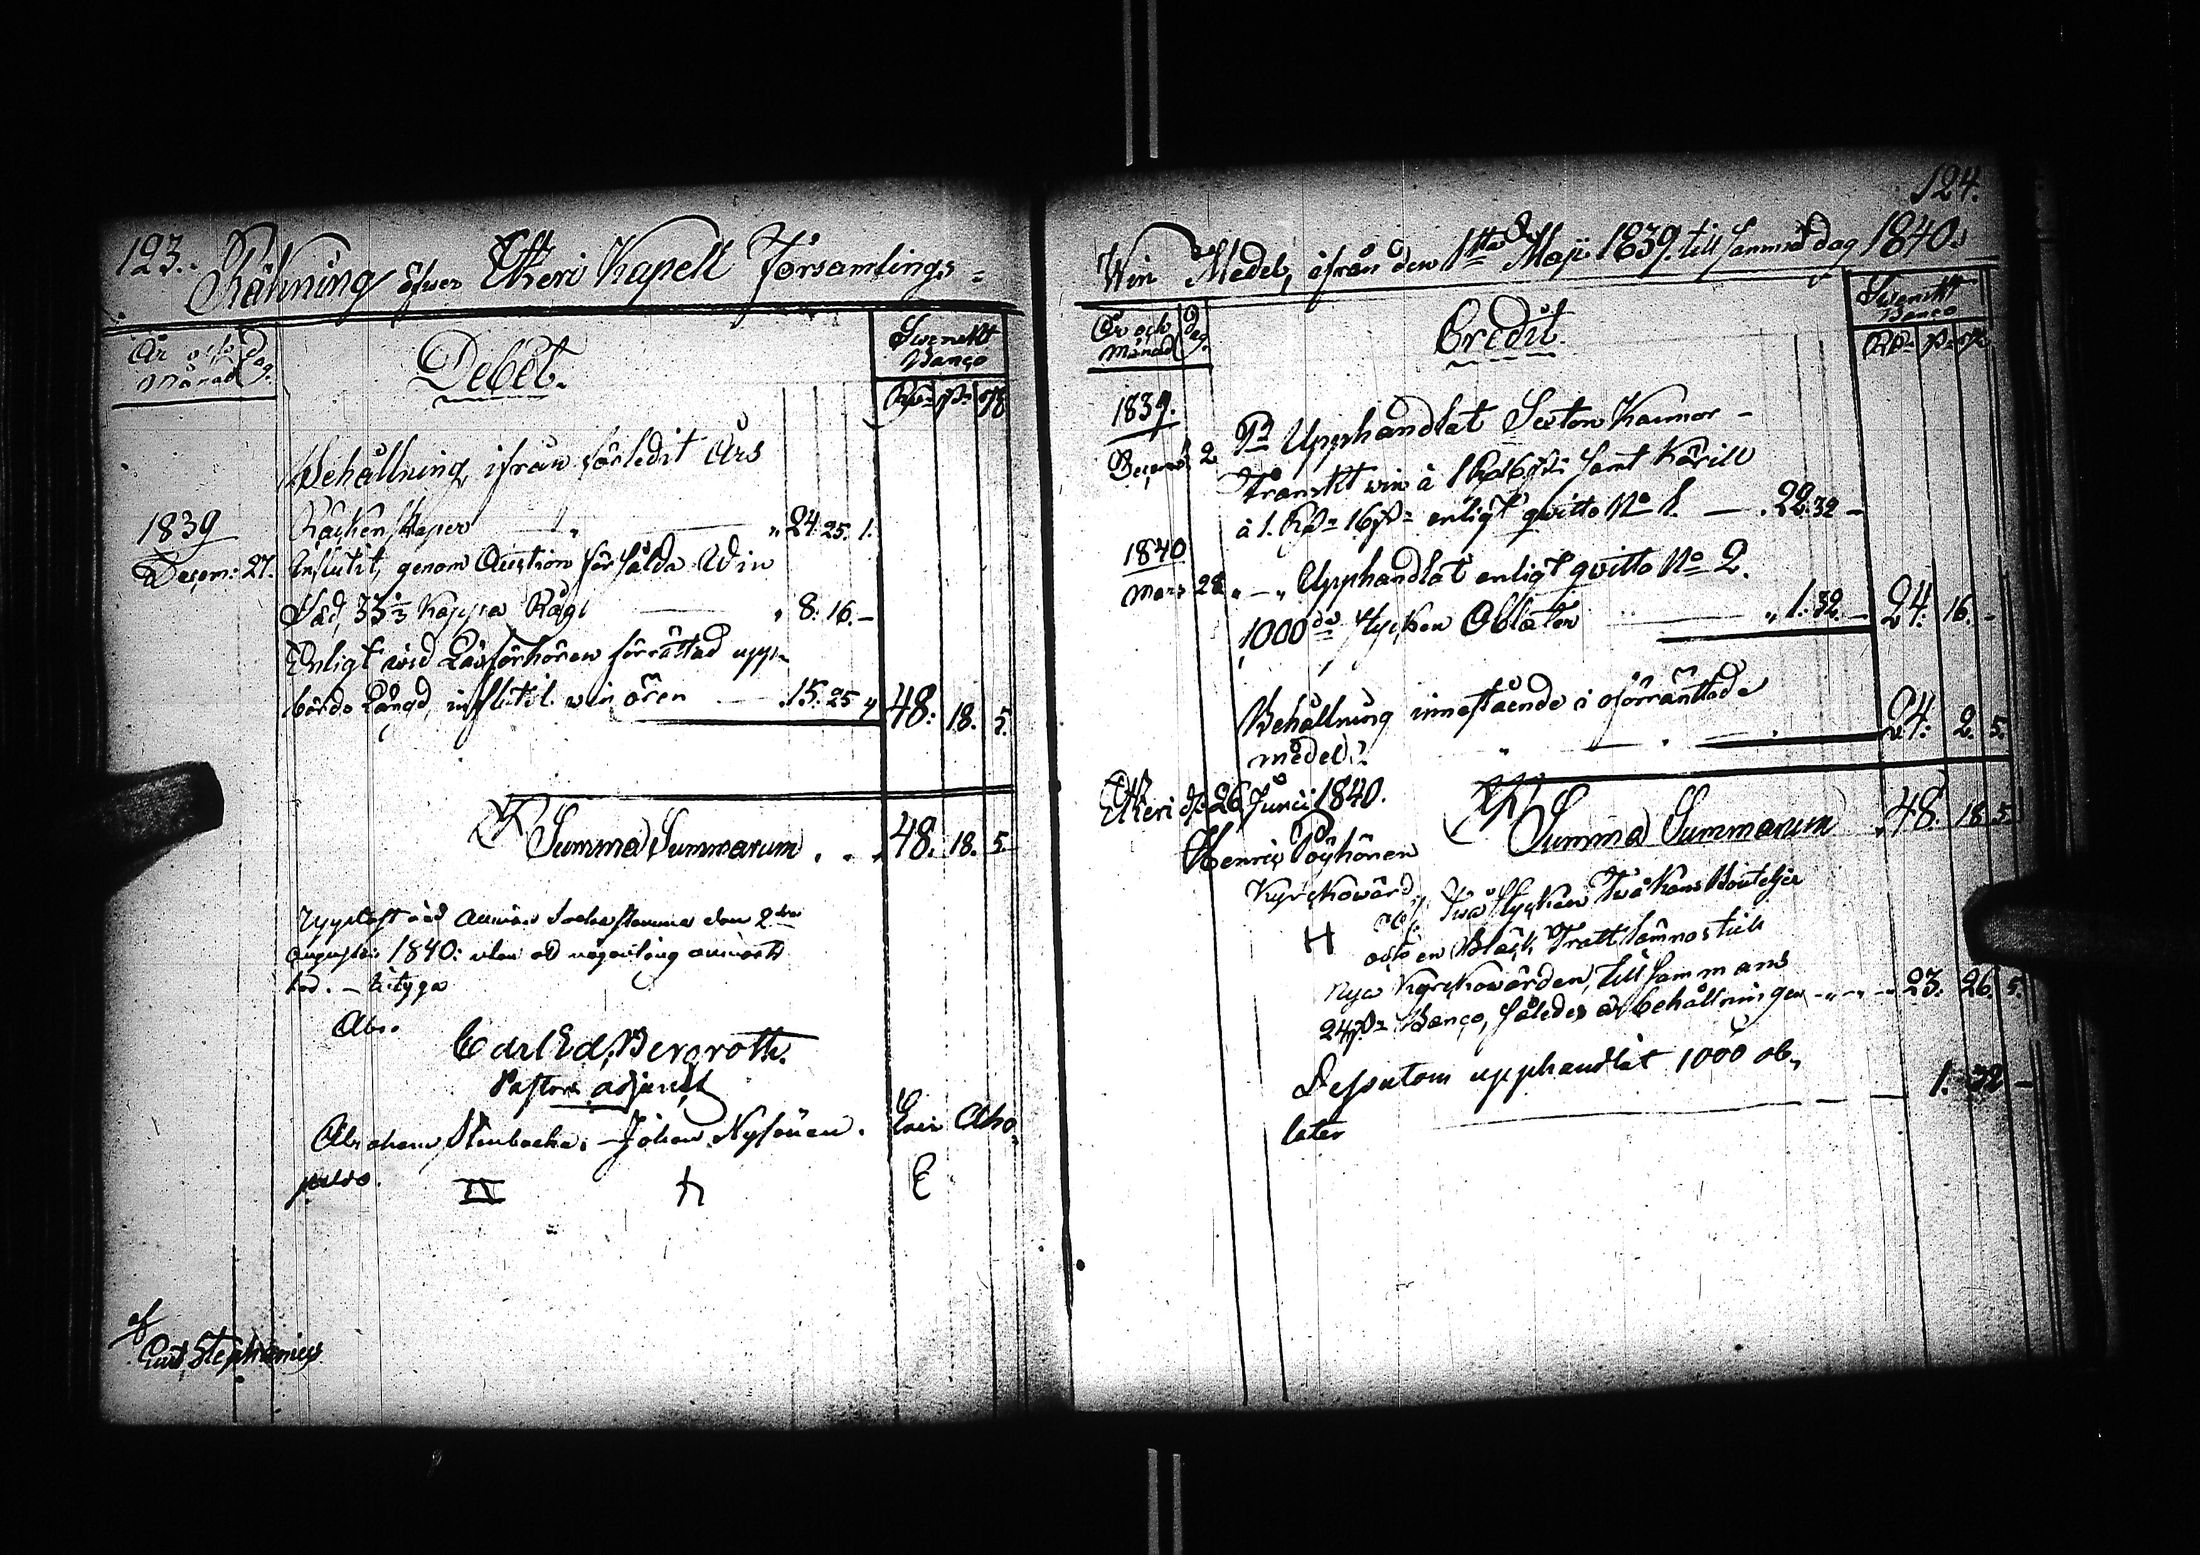 123.
Räkning öfver Etseri Kapell Församlings=
År och Månad
Dag.
Debet.
Svenskt Banco
Behållning ifrån förledit Års
1839 Räkenskaper " 24. 25. 1.
Decem: 27. Influtit, genom Auction försålda Win
Säd, 33 1/3 Kappa Råg " 8. 16. –
Enligt vid Läsförhören förrättad upp-
börds Längd, influtit win ören 15. 25 4 48. 18. 5.
Summa Summarum . . . 48. 18. 5.
Uppläst vid Allmän Sockenstämma den 2dra
Augusti 1840: utan att någonting anmärk-
tes. – Betyga
Carl Ed. Bergroth.
Pastors adjunct
Abraham Stenbacka. – Johan Nysönen. Eric Aho.
IV h E
Stephanius
124.
Win Medel, ifrån den 1sta Maji 1839. till samma dag 1840.
År och Månad
Dag.
Credit.
Svenskt Banco
1839.
Decemb. 2 Pr Upphandlat Sexton Kannor
franskt win à 1 Rd 16 sk samt Kärill
à 1. Rd 16 sk enligt qvitto No 1. – . 22. 32 –
1840
Mars 28 " – " Upphandlat enligt qvitto No 2.
1000de stycken Oblater " 1. 32. – 24. 16. –
Behållning innestående i oförräntade
medel 24. 2. 5.
Etseri d. 26 Junii 1840.
Summa Summarum 48. 18. 5
Henric Pöyhönen
Kyrckovärd
H Två stycken Två Kans Bouteljer
och en Bläck Tratt lämnas till
nya Kyrckovärden, tillsammans
24 sk Banco, således är behållningen 23. 26. 5.
Dessutom upphandlat 1000 ob-
later 1. 32 –